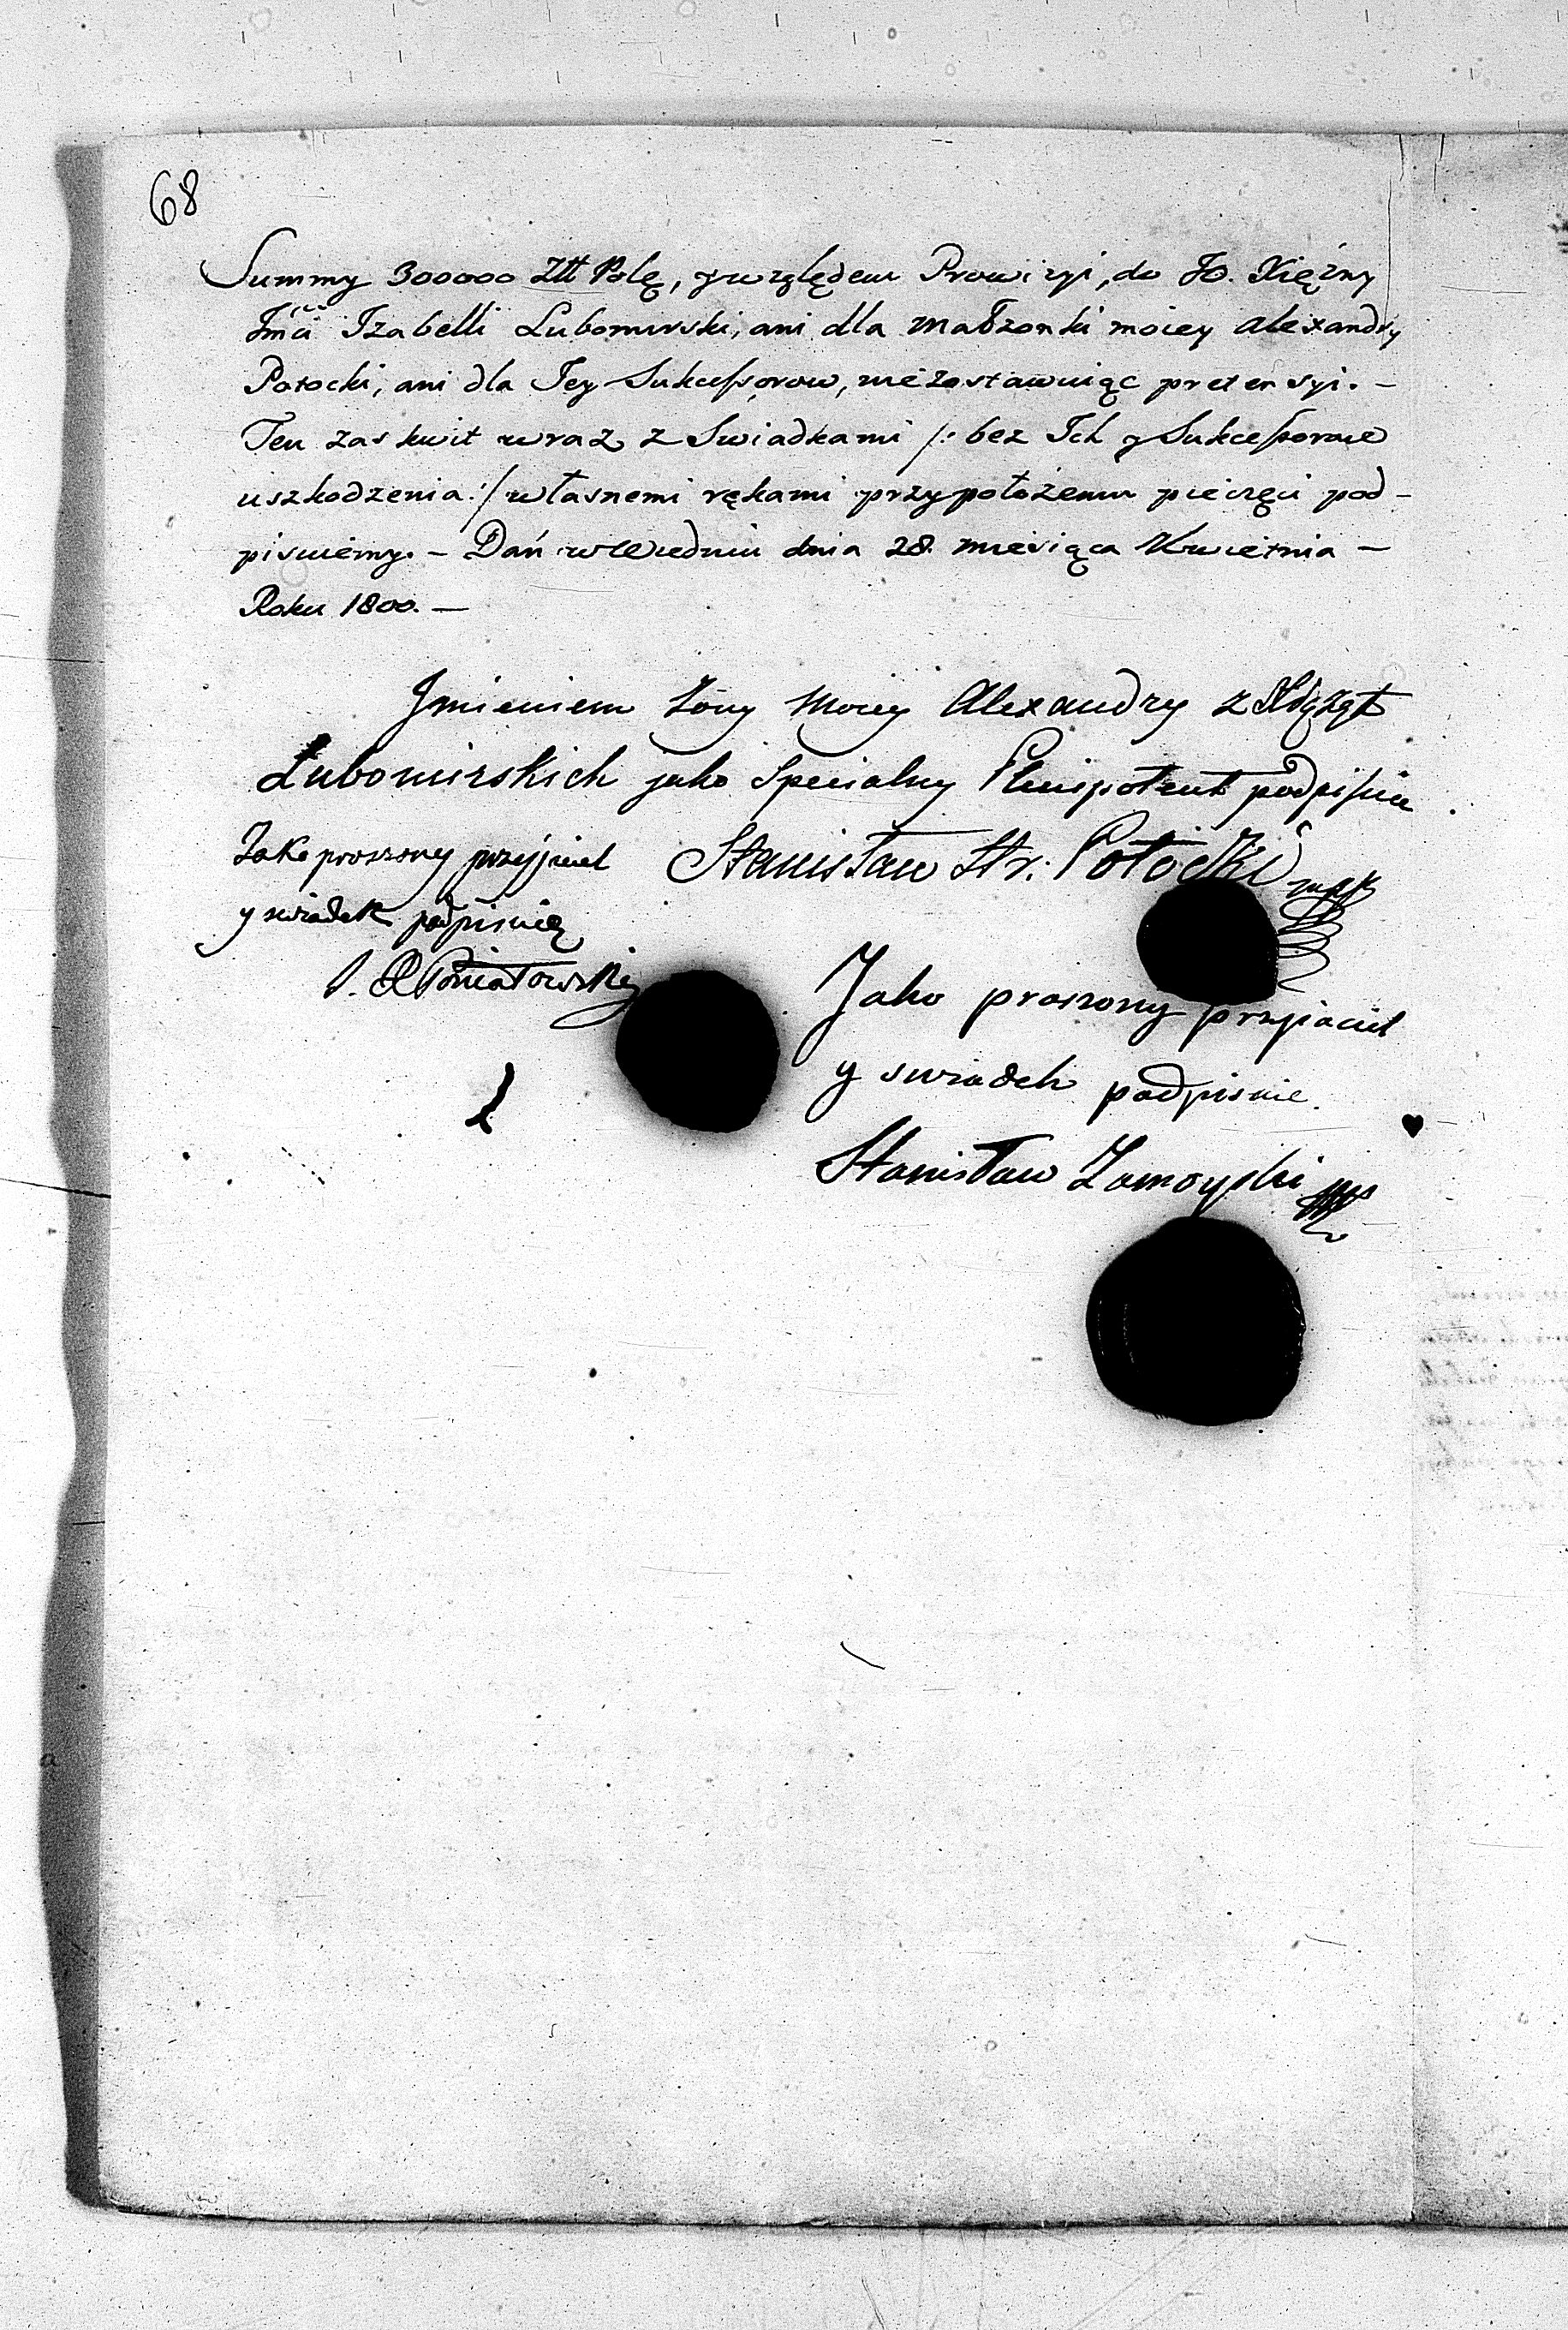 68
Summy 300000 Złł Polę, y względem Prowizyi, do JO. Xiężny
Jmci Izabelli Lubomirski, ani dla Małżonki moiey Alexandry
Potocki, ani dla Jey Sukcessorow, niezostawuiąc pretensyi. —
Ten zas kwit wraz z Swiadkami /: bez Ich y Sukcessorow
uszkodzenia :/ własnemi rękami przypołożeniu pieczęci pod-
pisuiemy. — Dań w Wiedniu dnia 28. miesiąca Kwietnia —
Roku 1800. —
Jmieniem Zóny Moiey Alexandry z Xsiążąt
Lubomirskich jako Specialny Plenipotent podpisuie
Stanisław Hr. Potocki mpp
Jako proszony przyjaciel
y swiadek podpisuię
J. X Poniatowski
Jako proszony przyiaciel
y swiadek podpisuie.
Stanisław Zamoyski mpp